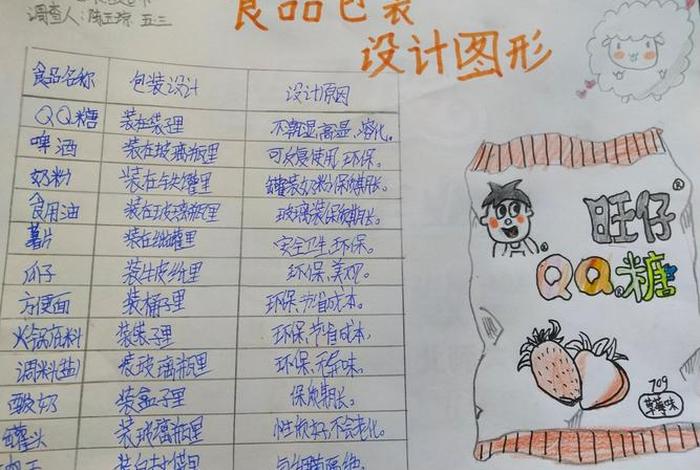 调查人:陈玉琼 五三
食品包装
设计图形
食品名称 包装设计 设计原因
QQ糖 装在袋子里 不乾湿高温,溶化。
啤酒 装在玻璃瓶里 可反复使用,环保。
奶粉 装在铁罐里 罐装奶粉保质期长。
食用油 装在玻璃瓶里 玻璃装保质期长。
薯片 装在纸罐里 安全卫生,环保。
瓜子 装牛皮纸里 环保,美观。
方便面 装桶子里 环保,节省成本。
火锅底料 装袋子里 环保,节省成本,
调料(盐) 装玻璃瓶里 环保,无异味。
酸奶 装盒子里 保质期长。
罐头 装玻璃瓶里 性质好,不会老化。
旺仔®
QQ糖
70g
草莓味